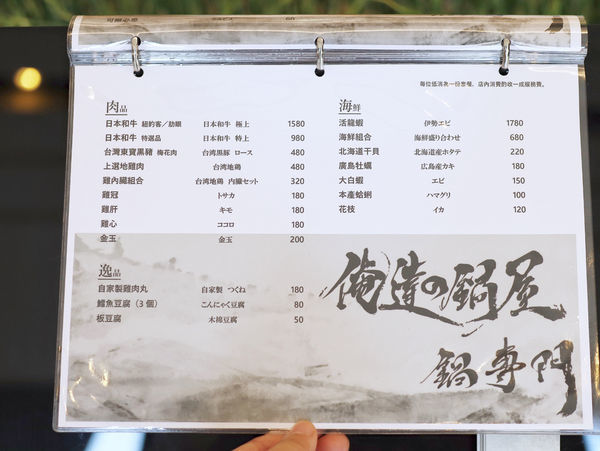 每位低消為一份套餐，店內消費酌收一成服務費。
肉品
日本和牛 紐約客／肋眼 日本和牛 極上 1580
日本和牛 特選品 日本和牛 特上 980
台灣東寶黑豬 梅花肉 台湾黒豚 ロース 480
上選地雞肉 台湾地鶏 480
雞內臟組合 台湾地鶏 内臓セット 320
雞冠 トサカ 180
雞肝 キモ 180
雞心 ココロ 180
金玉 金玉 200
海鮮
活龍蝦 伊勢エビ 1780
海鮮組合 海鮮盛り合わせ 680
北海道干貝 北海道産ホタテ 220
廣島牡蠣 広島産カキ 180
大白蝦 エビ 150
本產蛤蜊 ハマグリ 100
花枝 イカ 120
逸品
自家製雞肉丸 自家製 つくね 180
鱈魚豆腐（3 個） こんにゃく豆腐 80
板豆腐 木綿豆腐 50
俺達の鍋屋
鍋專門